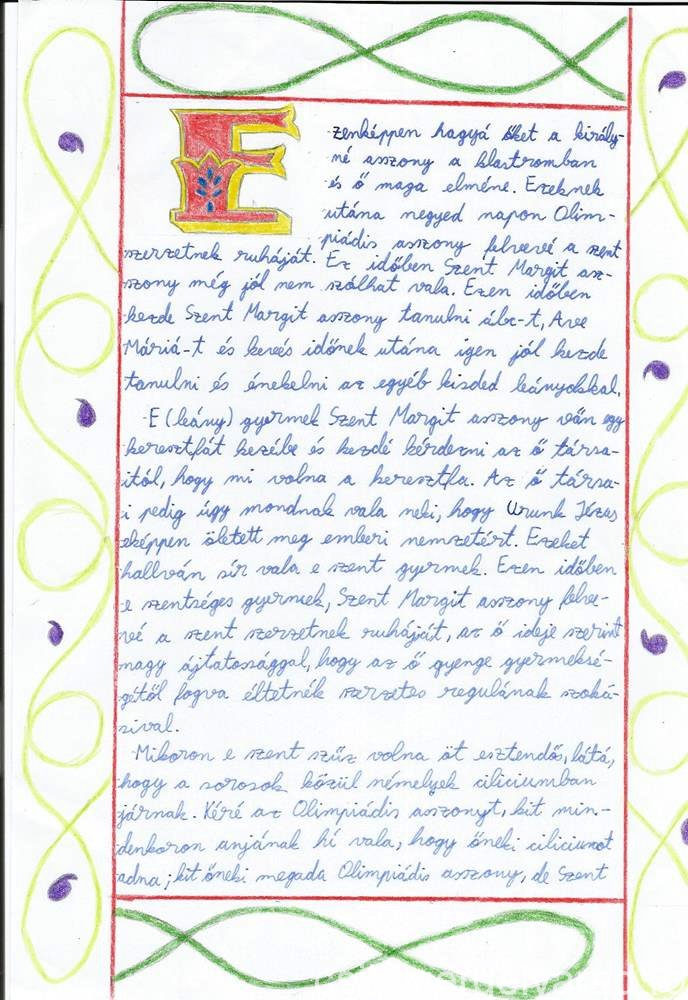 Ezenképpen hagyá őket a király-
né asszony a klastromban
és ő maga elméne. Ezeknek
utána negyed napon Olim-
piádis asszony felvevé a szent
szerzetnek ruháját. Ez időben Szent Margit asz-
szony még jól nem szólhat vala. Ezen időben
kezde Szent Margit asszony tanulni ábc-t, Ave
Máriá-t és kevés időnek utána igen jól kezde
tanulni és énekelni az egyéb kisded leányokkal.
E (leány) gyermek Szent Margit asszony vőn egy
keresztfát kezébe és kezdé kérdezni az ő társa-
itól, hogy mi volna a keresztfa. Az ő társa-
i pedig úgy mondnak vala neki, hogy Urunk Jézus
eképpen öletett meg emberi nemzetért. Ezeket
hallván sír vala e szent gyermek. Ezen időben
e szentséges gyermek, Szent Margit asszony felve-
vé a szent szerzetnek ruháját, az ő ideje szerint
nagy ájtatossággal, hogy az ő gyenge gyermeksé-
gétől fogva éltetnék szerzetes regulának szoká-
sival.
Mikoron e szent szűz volna öt esztendős, látá,
hogy a sorosok közül némelyek ciliciumban
járnak. Kéré az Olimpiádis asszonyt, kit min-
denkoron anyjának hí vala, hogy őneki ciliciumot
adna; kit őneki megada Olimpiádis asszony, de Szent